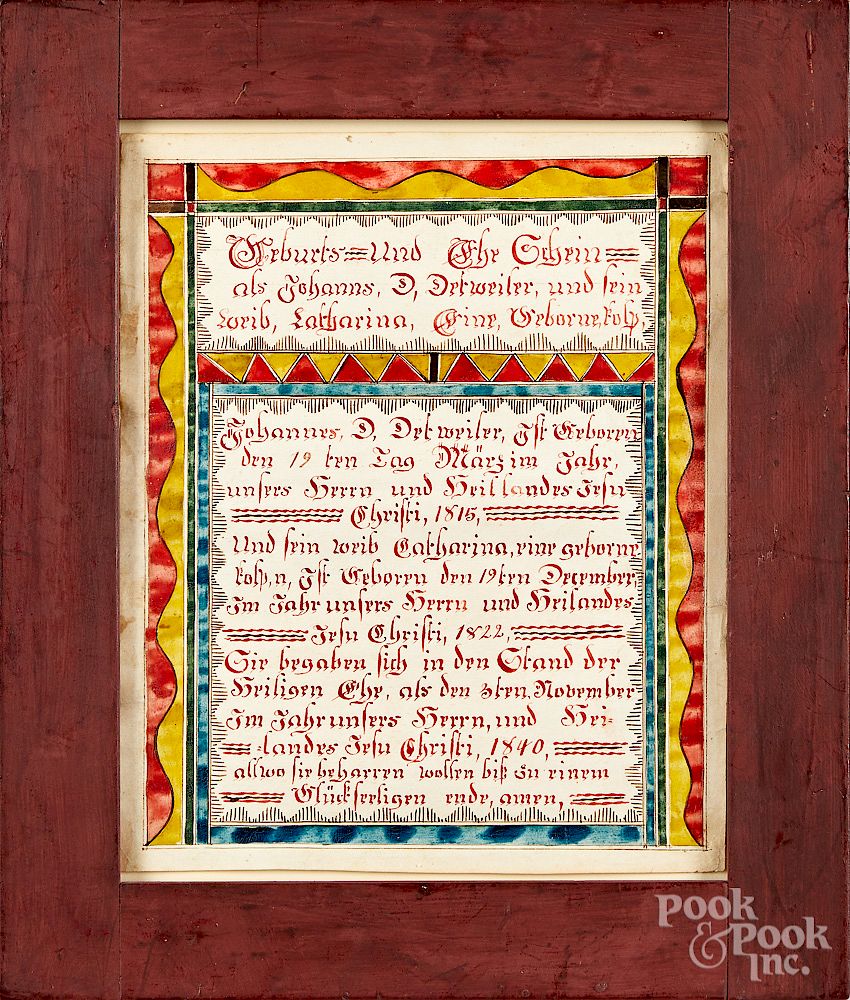 Geburts= Und Ehe Schein=
als Johanns, D, Detweiler, und sein
weib, Catharina, Eine, Geborne, kolp,
Johannes, D, Detweiler, Ist Geboren
den 19 ten Tag März im Jahr,
unsers Herrn und Heillandes Jesu
Christi, 1815,
Und sein weib Catharina, eine geborne
kolp,n, Ist Geboren den 19ten December,
Im Jahr unsers Herrn und Heilandes
Jesu Christi, 1822,
Sie begaben sich in den Stand der
Heiligen Ehe, als den 3ten, November
Im Jahr unsers Herrn, und Hei=
=landes Jesu Christi, 1840,
allwo sie beharren wollen biß zu einem
Glückseeligen ende, amen,
POOK
& POOK
INC.